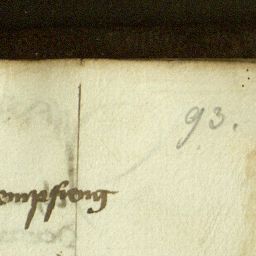 93.
empfieng